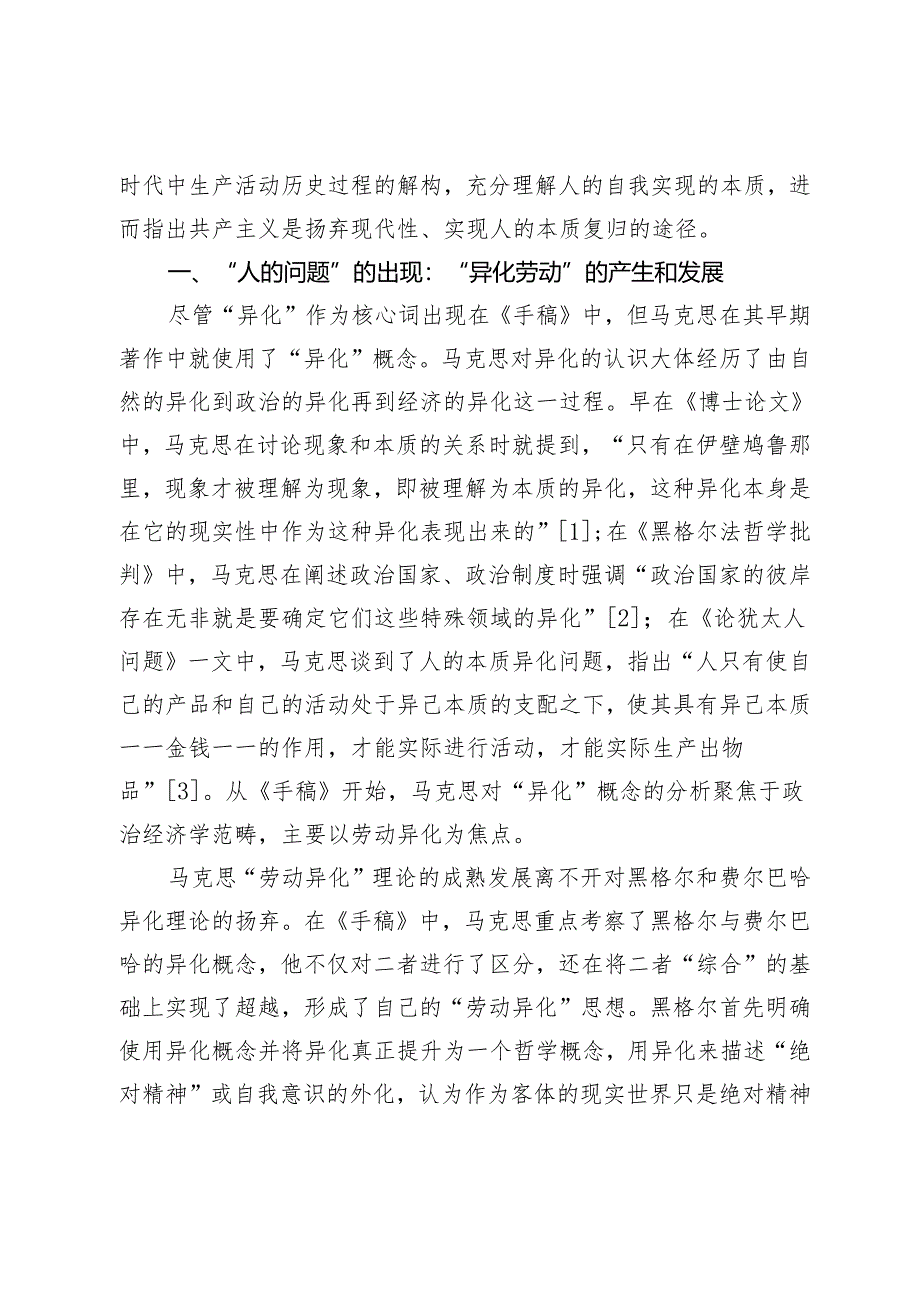 时代中生产活动历史过程的解构，充分理解人的自我实现的本质，进
而指出共产主义是扬弃现代性、实现人的本质复归的途径。
一、“人的问题”的出现：“异化劳动”的产生和发展
尽管“异化”作为核心词出现在《手稿》中，但马克思在其早期
著作中就使用了“异化”概念。马克思对异化的认识大体经历了由自
然的异化到政治的异化再到经济的异化这一过程。早在《博士论文》
中，马克思在讨论现象和本质的关系时就提到，“只有在伊壁鸠鲁那
里，现象才被理解为现象，即被理解为本质的异化，这种异化本身是
在它的现实性中作为这种异化表现出来的”[1];在《黑格尔法哲学批
判》中，马克思在阐述政治国家、政治制度时强调“政治国家的彼岸
存在无非就是要确定它们这些特殊领域的异化”[2]；在《论犹太人
问题》一文中，马克思谈到了人的本质异化问题，指出“人只有使自
己的产品和自己的活动处于异己本质的支配之下，使其具有异己本质
一一金钱一一的作用，才能实际进行活动，才能实际生产出物
品”[3]。从《手稿》开始，马克思对“异化”概念的分析聚焦于政
治经济学范畴，主要以劳动异化为焦点。
马克思“劳动异化”理论的成熟发展离不开对黑格尔和费尔巴哈
异化理论的扬弃。在《手稿》中，马克思重点考察了黑格尔与费尔巴
哈的异化概念，他不仅对二者进行了区分，还在将二者“综合”的基
础上实现了超越，形成了自己的“劳动异化”思想。黑格尔首先明确
使用异化概念并将异化真正提升为一个哲学概念，用异化来描述“绝
对精神”或自我意识的外化，认为作为客体的现实世界只是绝对精神